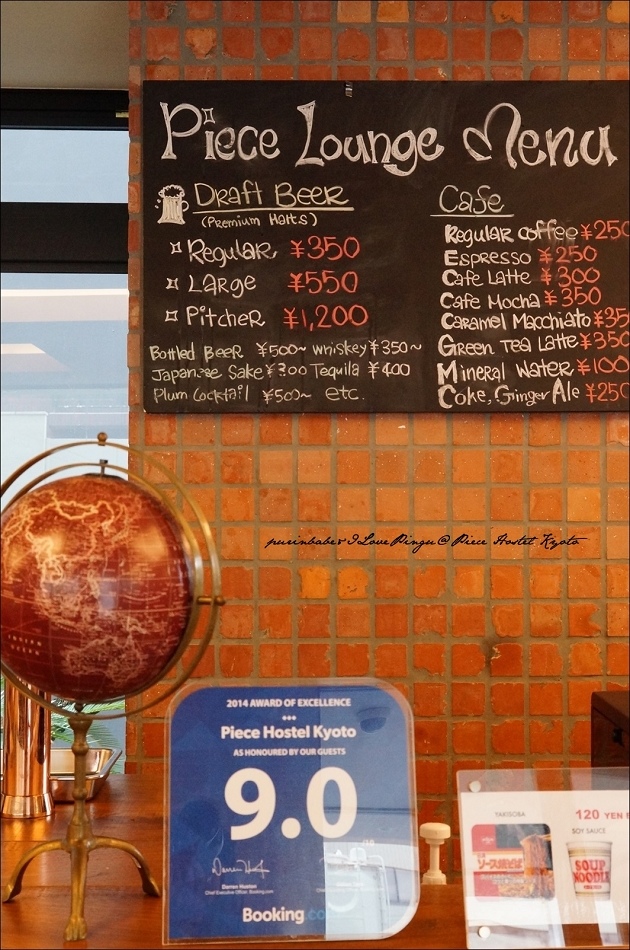 Piece Lounge Menu
Draft Beer
(Premium Malts)
Regular ¥350
Large ¥550
Pitcher ¥1,200
Bottled Beer ¥500~ Whiskey ¥350~
Japanese Sake ¥300 Tequila ¥400
Plum Cocktail ¥500~ etc.
Cafe
Regular coffee ¥250
Espresso ¥250
Cafe Latte ¥300
Cafe Mocha ¥350
Caramel Macchiato ¥35
Green Tea Latte ¥350
Mineral Water ¥100
Coke, Ginger Ale ¥250
purinbabe & I Love Pingu @ Piece Hostel Kyoto
INDIAN
OCEAN
2014 AWARD OF EXCELLENCE
Piece Hostel Kyoto
AS HONOURED BY OUR GUESTS
9.0
/10
Darren Huston
Chief Executive Officer, Booking.com
Booking.co
YAKISOBA
120 YEN
SOY SAUCE
ソース焼そば
SOUP
NOODLE